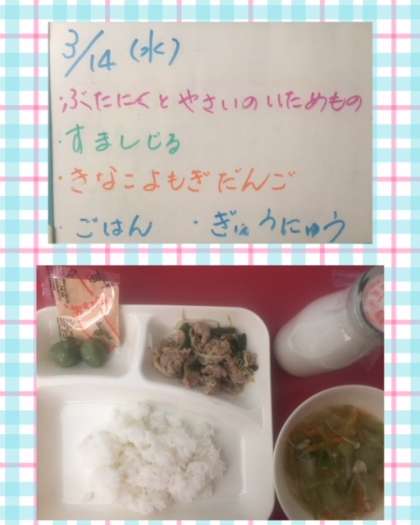 3/14 (水)
・ぶたにくとやさいのいためもの
・すましじる
・きなこよもぎだんご
・ごはん ・ぎゅうにゅう